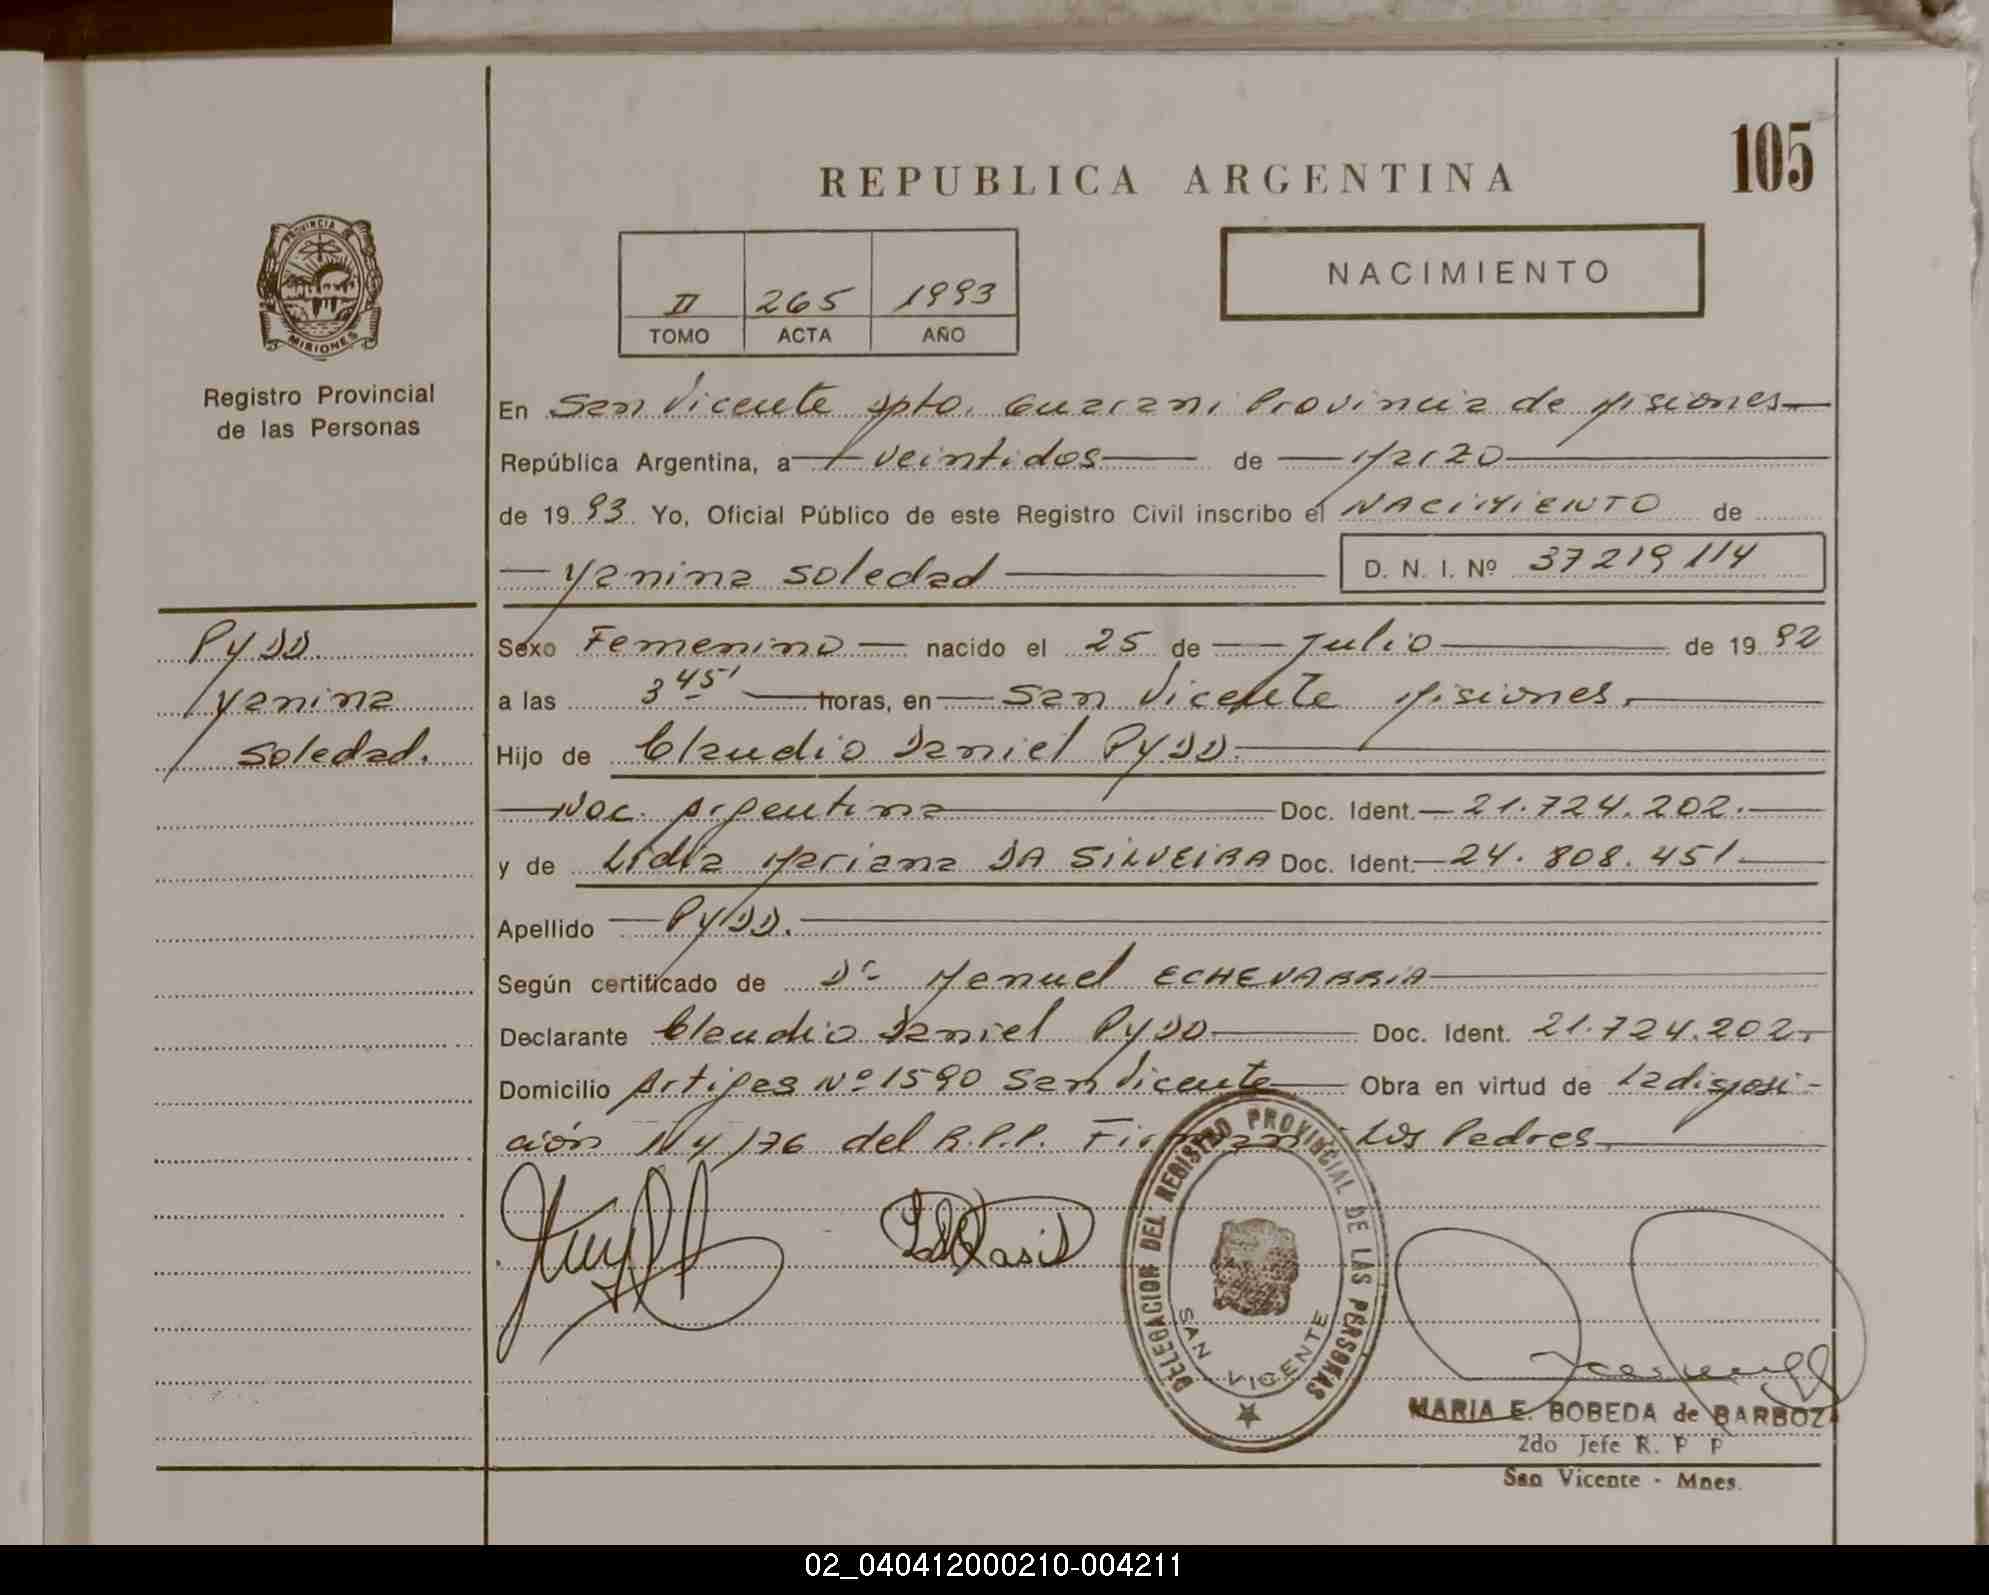 105
REPUBLICA ARGENTINA
NACIMIENTO
II 265 1993
TOMO ACTA AÑO
PROVINCIA DE
MISIONES
Registro Provincial
de las Personas
En San Vicente Dpto. Guarani Provincia de Misiones
República Argentina, a veintidos de Marzo
de 1993. Yo, Oficial Público de este Registro Civil inscribo el NACIMIENTO de
Yanina Soledad D. N. I. Nº 37219114
PYDD
Yanina
Soledad.
Sexo Femenino nacido el 25 de Julio de 1992
a las 3 45' horas, en San Vicente Misiones.
Hijo de Claudio Daniel PYDD.
Nac. Argentina Doc. Ident. 21.724.202.
y de Lidia Mariana DA SILVEIRA Doc. Ident. 24.808.451.
Apellido PYDD.
Según certificado de Dr Manuel ECHEVARRIA
Declarante Claudio Daniel PYDD Doc. Ident. 21.724.202.
Domicilio Artigas Nº 1590 San Vicente Obra en virtud de La disposi-
ción N 4/76 del R.P.P. Firman Los Padres.
DELEGACION DEL REGISTRO PROVINCIAL DE LAS PERSONAS
SAN VICENTE
MARIA E. BOBEDA de BARBOZ
2do Jefe R. P P
San Vicente - Mnes.
02_040412000210-004211